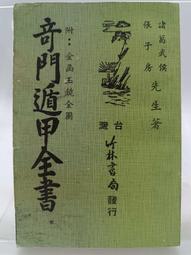 諸葛武侯
張子房
先生著
附:金函玉鏡全圖
奇門遁甲全書
台灣
竹林書局
發行